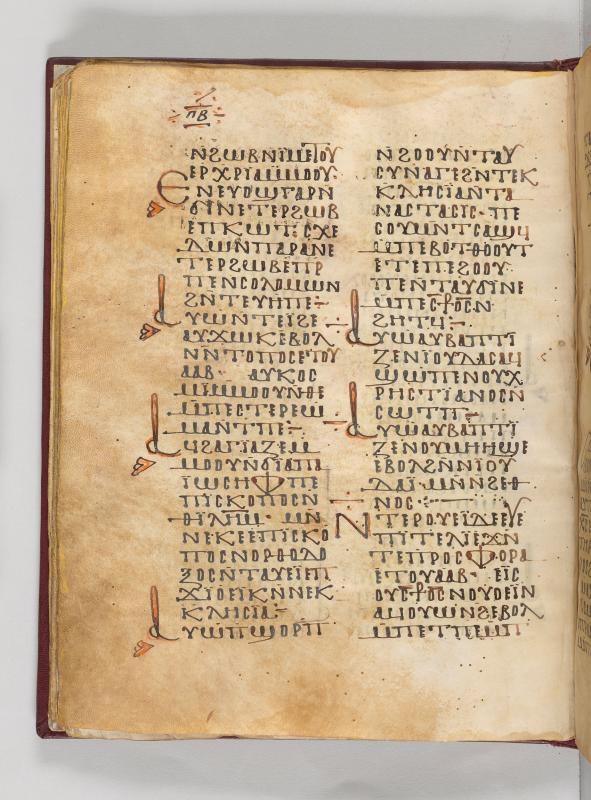 ⲡⲃ
ⲛϩⲱⲃⲛⲓⲙⲉⲧⲟⲩ
ⲉⲣⲭⲣⲓⲁⲙⲙⲟⲟⲩ·
ⲉⲛⲉⲩⲟϣⲅⲁⲣⲛ
ϭⲓⲛⲉⲧⲉⲣϩⲱⲃ
ⲉⲡⲕⲱⲧ·ⲥⲭⲉ
ⲇⲱⲛⲡⲁⲣⲁⲛⲉ
ⲧⲉⲣϩⲱⲃⲉⲡⲣ
ⲡⲉⲛⲥⲟⲗⲟⲙⲱⲛ
ϩⲛⲧⲉⲩⲏⲡⲉ·
ⲁⲩⲱⲛⲧⲉⲓϩⲉ
ⲁⲩϫⲱⲕⲉⲃⲟⲗ
ⲛⲛⲧⲟⲡⲟⲥⲉⲧⲟⲩ
ⲁⲁⲃ· ⲁⲩⲕⲟⲥ
ⲙⲓⲙⲙⲟⲟⲩⲛⲑⲉ
ⲙⲡⲉⲥⲧⲉⲣⲉⲱ
ⲙⲁⲛⲧⲡⲉ·
ⲁϥϩⲁⲅⲓⲁⲍⲉⲙ
ⲙⲟⲟⲩⲛϭⲓⲁⲡⲁ
ⲓⲱⲥⲏⲫⲡⲉ
ⲡⲓⲥⲕⲟⲡⲟⲥⲛ
ⲑⲓⲗⲏⲙ· ⲙⲛ
ⲛⲉⲕⲉⲉⲡⲓⲥⲕⲟ
ⲡⲟⲥⲛⲟⲣⲑⲟⲇⲟ
ⲝⲟⲥⲛⲧⲁⲩⲉⲓⲉⲡ
ϫⲓⲟⲉⲓⲕⲛⲛⲉⲕ
ⲕⲗⲏⲥⲓⲁ·
ⲁⲩⲱⲡϣⲟⲣⲡ
ⲛϩⲟⲟⲩⲛⲧⲁⲩ
ⲥⲩⲛⲁⲅⲉϩⲛⲧⲉⲕ
ⲕⲗⲏⲥⲓⲁⲛⲧⲁ
ⲛⲁⲥⲧⲁⲥⲓⲥ·ⲡⲉ
ⲥⲟⲩⲙⲛⲧⲥⲁϣϥ
ⲙⲡⲉⲃⲟⲧⲑⲟⲟⲩⲧ
ⲉⲧⲉⲡⲉϩⲟⲟⲩ
ⲡⲉⲛⲧⲁⲩϭⲓⲛⲉ
ⲙⲡⲉⲥ⳨ⲟⲥⲛ
ϩⲏⲧϥ·
ⲁⲩⲱⲁⲩⲃⲁⲡⲧⲓ
ⲍⲉⲛⲓⲟⲩⲇⲁⲥⲁϥ
ϣⲱⲡⲉⲛⲟⲩⲭ
ⲣⲏⲥⲧⲓⲁⲛⲟⲥⲛ
ⲥⲱⲧⲡ·
ⲁⲩⲱⲁⲩⲃⲁⲡⲧⲓ
ⲍⲉⲛⲟⲩⲙⲏⲏϣⲉ
ⲉⲃⲟⲗϩⲛⲛⲓⲟⲩ
ⲇⲁⲓ ⲙⲛⲛϩⲉⲑ
ⲛⲟⲥ·
ⲛⲧⲉⲣⲟⲩⲉⲓⲇⲉⲉⲩⲉ
ⲡⲓⲧⲉⲗⲓⲉϫⲛ
ⲧⲉⲡⲣⲟⲥⲫⲟⲣⲁ
ⲉⲧⲟⲩⲁⲁⲃ· ⲉⲓⲥ
ⲟⲩⲥ⳨ⲟⲥⲛⲟⲩⲟⲉⲓⲛ
ⲁϥⲟⲩⲱⲛϩⲉⲃⲟⲗ
ⲙⲡⲉⲧⲡⲉⲙⲡ